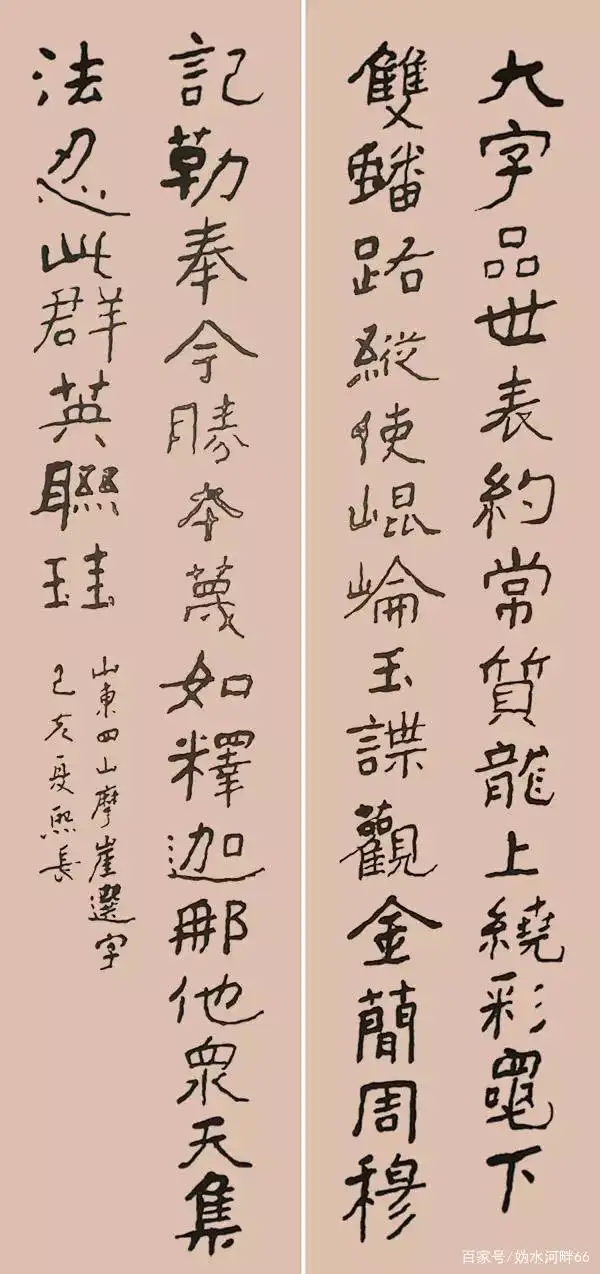 大字品世表約常質龍上繞彩下
雙蟠路縱使崐崘玉諜觀金簡周穆
記勒奉今勝夲蔑如釋迦那他衆天集
法忍此群英聯珪
山東四山摩崖選字
己亥夏熙長
百家号/妫水河畔66